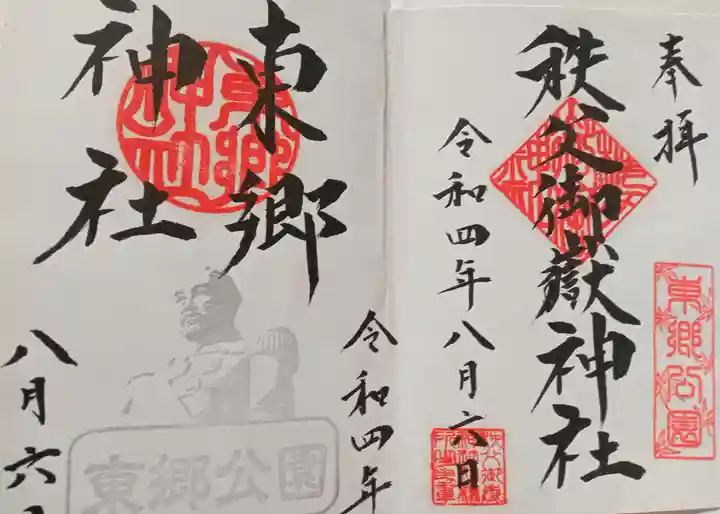 奉拝
秩父御嶽神社
令和四年八月六日
東郷公園
東郷
神社
令和四年
八月六
東郷公園